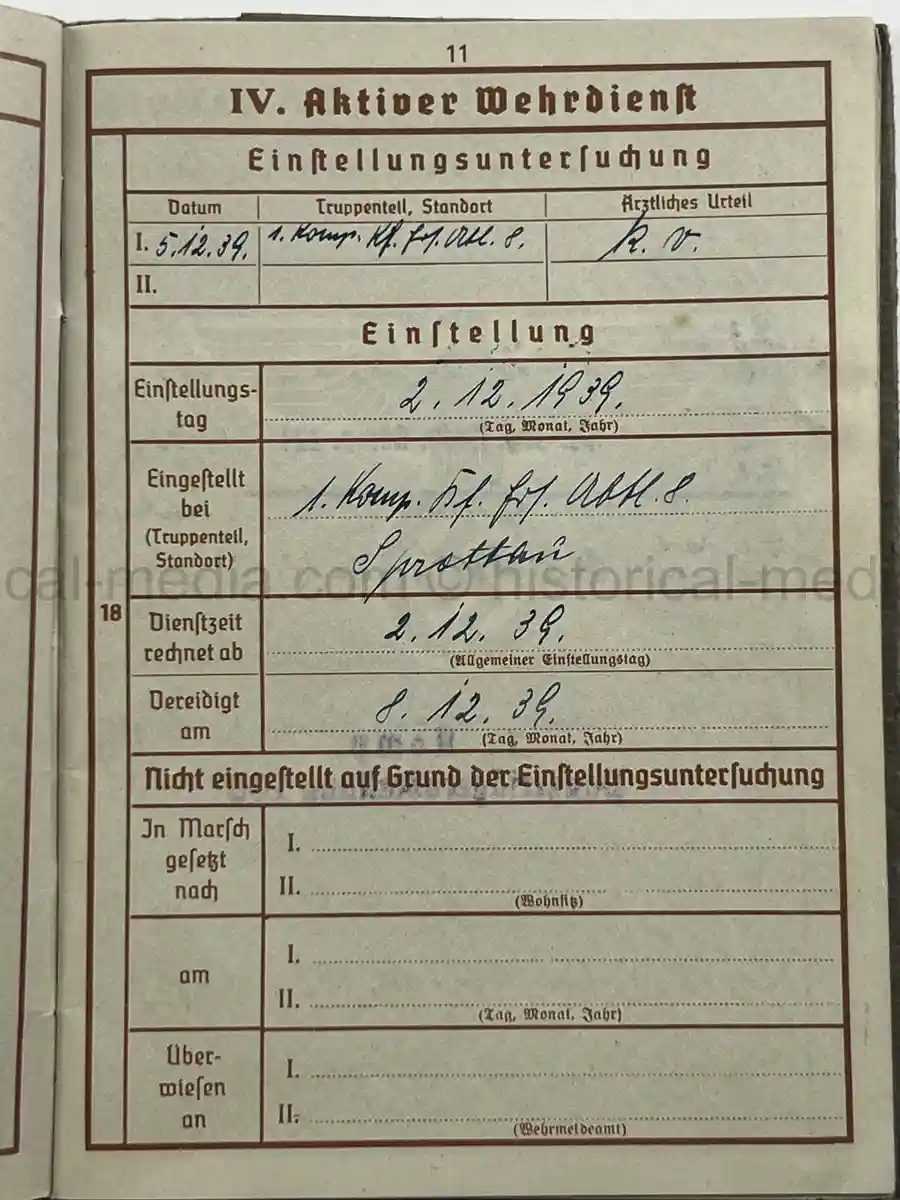 11
IV. Aktiver Wehrdienst
Einstellungsuntersuchung
Datum Truppenteil, Standort Ärztliches Urteil
I. 5.12.39. 1. Komp. Kf. Ers. Abtl. 8. k. v.
II.
Einstellung
Einstellungs-
tag
2. 12. 1939.
(Tag, Monat, Jahr)
Eingestellt
bei
(Truppenteil,
Standort)
1. Komp. Kf. Ers. Abtl. 8.
Sprottau
cal-media.com © historical-med
18
Dienstzeit
rechnet ab
2. 12. 39.
(Allgemeiner Einstellungstag)
Vereidigt
am
8. 12. 39.
(Tag, Monat, Jahr)
Nicht eingestellt auf Grund der Einstellungsuntersuchung
In Marsch
gesetzt
nach
I.
II.
(Wohnsitz)
am
I.
II.
(Tag, Monat, Jahr)
Über-
wiesen
an
I.
II.
(Wehrmeldeamt)